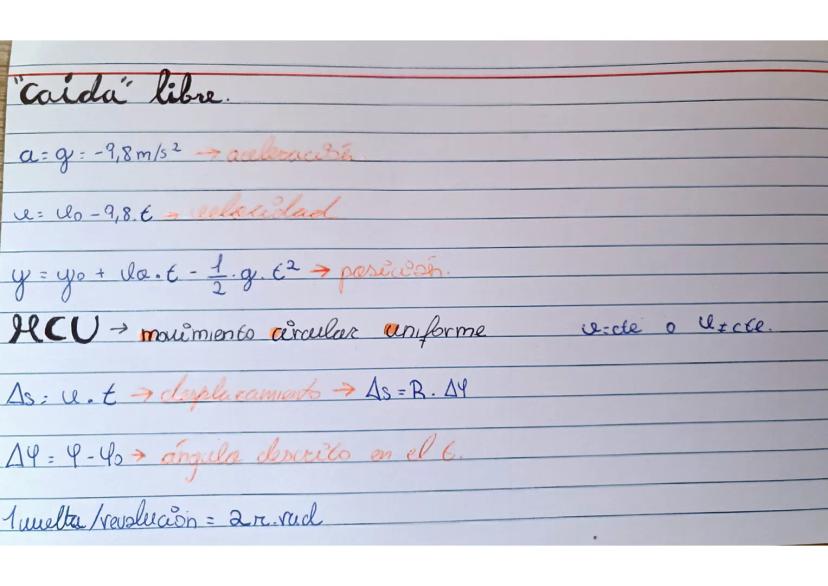 "Caída" libre.
a = g = -9,8 m/s² → aceleración
v = v₀ - 9,8.t → velocidad
y = y₀ + v₀.t - 1/2.g.t² → posición.
MCU → movimiento circular uniforme v=cte o v≠cte.
Δs = v.t → desplazamiento → Δs = R.Δφ
Δφ = φ-φ₀ → ángulo descrito en el t.
1 vuelta/revolución = 2π.rad